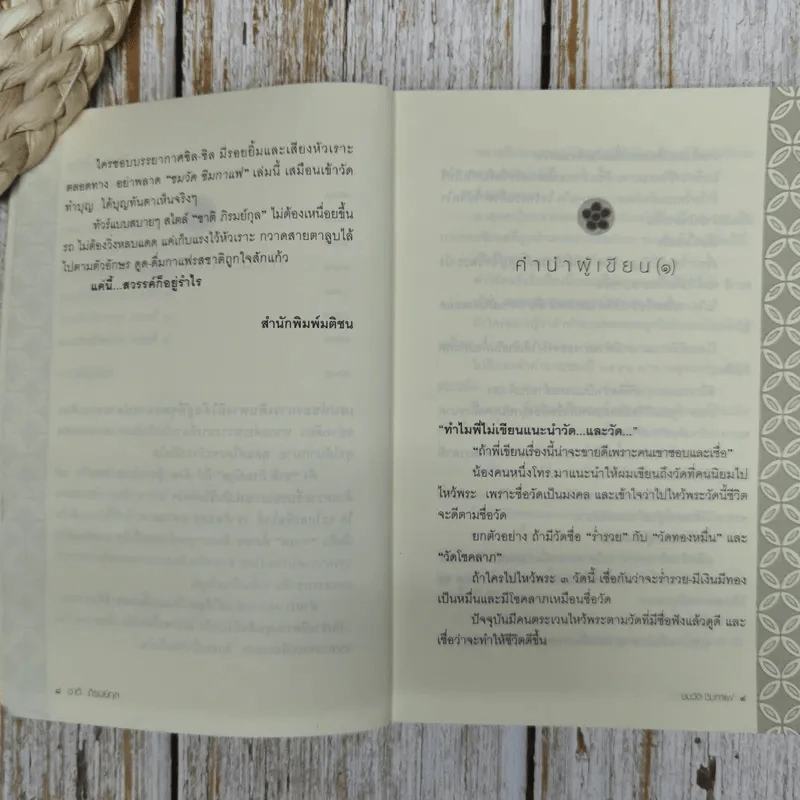 ใครชอบบรรยากาศชิล-ชิล มีรอยยิ้มและเสียงหัวเราะ
ตลอดทาง อย่าพลาด “ชมวัด ชิมกาแฟ” เล่มนี้ เสมือนเข้าวัด
ทำบุญ ได้บุญทันตาเห็นจริงๆ
ทัวร์แบบสบายๆ สไตล์ “ชาติ ภิรมย์กุล” ไม่ต้องเหนื่อยขึ้น
รถ ไม่ต้องวิ่งหลบแดด แค่เก็บแรงไว้หัวเราะ กวาดสายตาลูบไล้
ไปตามตัวอักษร ดูด-ดื่มกาแฟรสชาติถูกใจสักแก้ว
แค่นี้...สวรรค์ก็อยู่รำไร
สำนักพิมพ์มติชน
๘ ชาติ ภิรมย์กุล
คำนำผู้เขียน (๑)
“ทำไมพี่ไม่เขียนแนะนำวัด...และวัด...”
“ถ้าพี่เขียนเรื่องนี้น่าจะขายดีเพราะคนเขาชอบและเชื่อ”
น้องคนหนึ่งโทร.มาแนะนำให้ผมเขียนถึงวัดที่คนนิยมไป
ไหว้พระ เพราะชื่อวัดเป็นมงคล และเข้าใจว่าไปไหว้พระวัดนี้ชีวิต
จะดีตามชื่อวัด
ยกตัวอย่าง ถ้ามีวัดชื่อ “ร่ำรวย” กับ “วัดทองหมื่น” และ
“วัดโชคลาภ”
ถ้าใครไปไหว้พระ ๓ วัดนี้ เชื่อกันว่าจะร่ำรวย-มีเงินมีทอง
เป็นหมื่นและมีโชคลาภเหมือนชื่อวัด
ปัจจุบันมีคนตระเวนไหว้พระตามวัดที่มีชื่อฟังแล้วดูดี และ
เชื่อว่าจะทำให้ชีวิตดีขึ้น
ชมวัด ชิมกาแฟ ๙